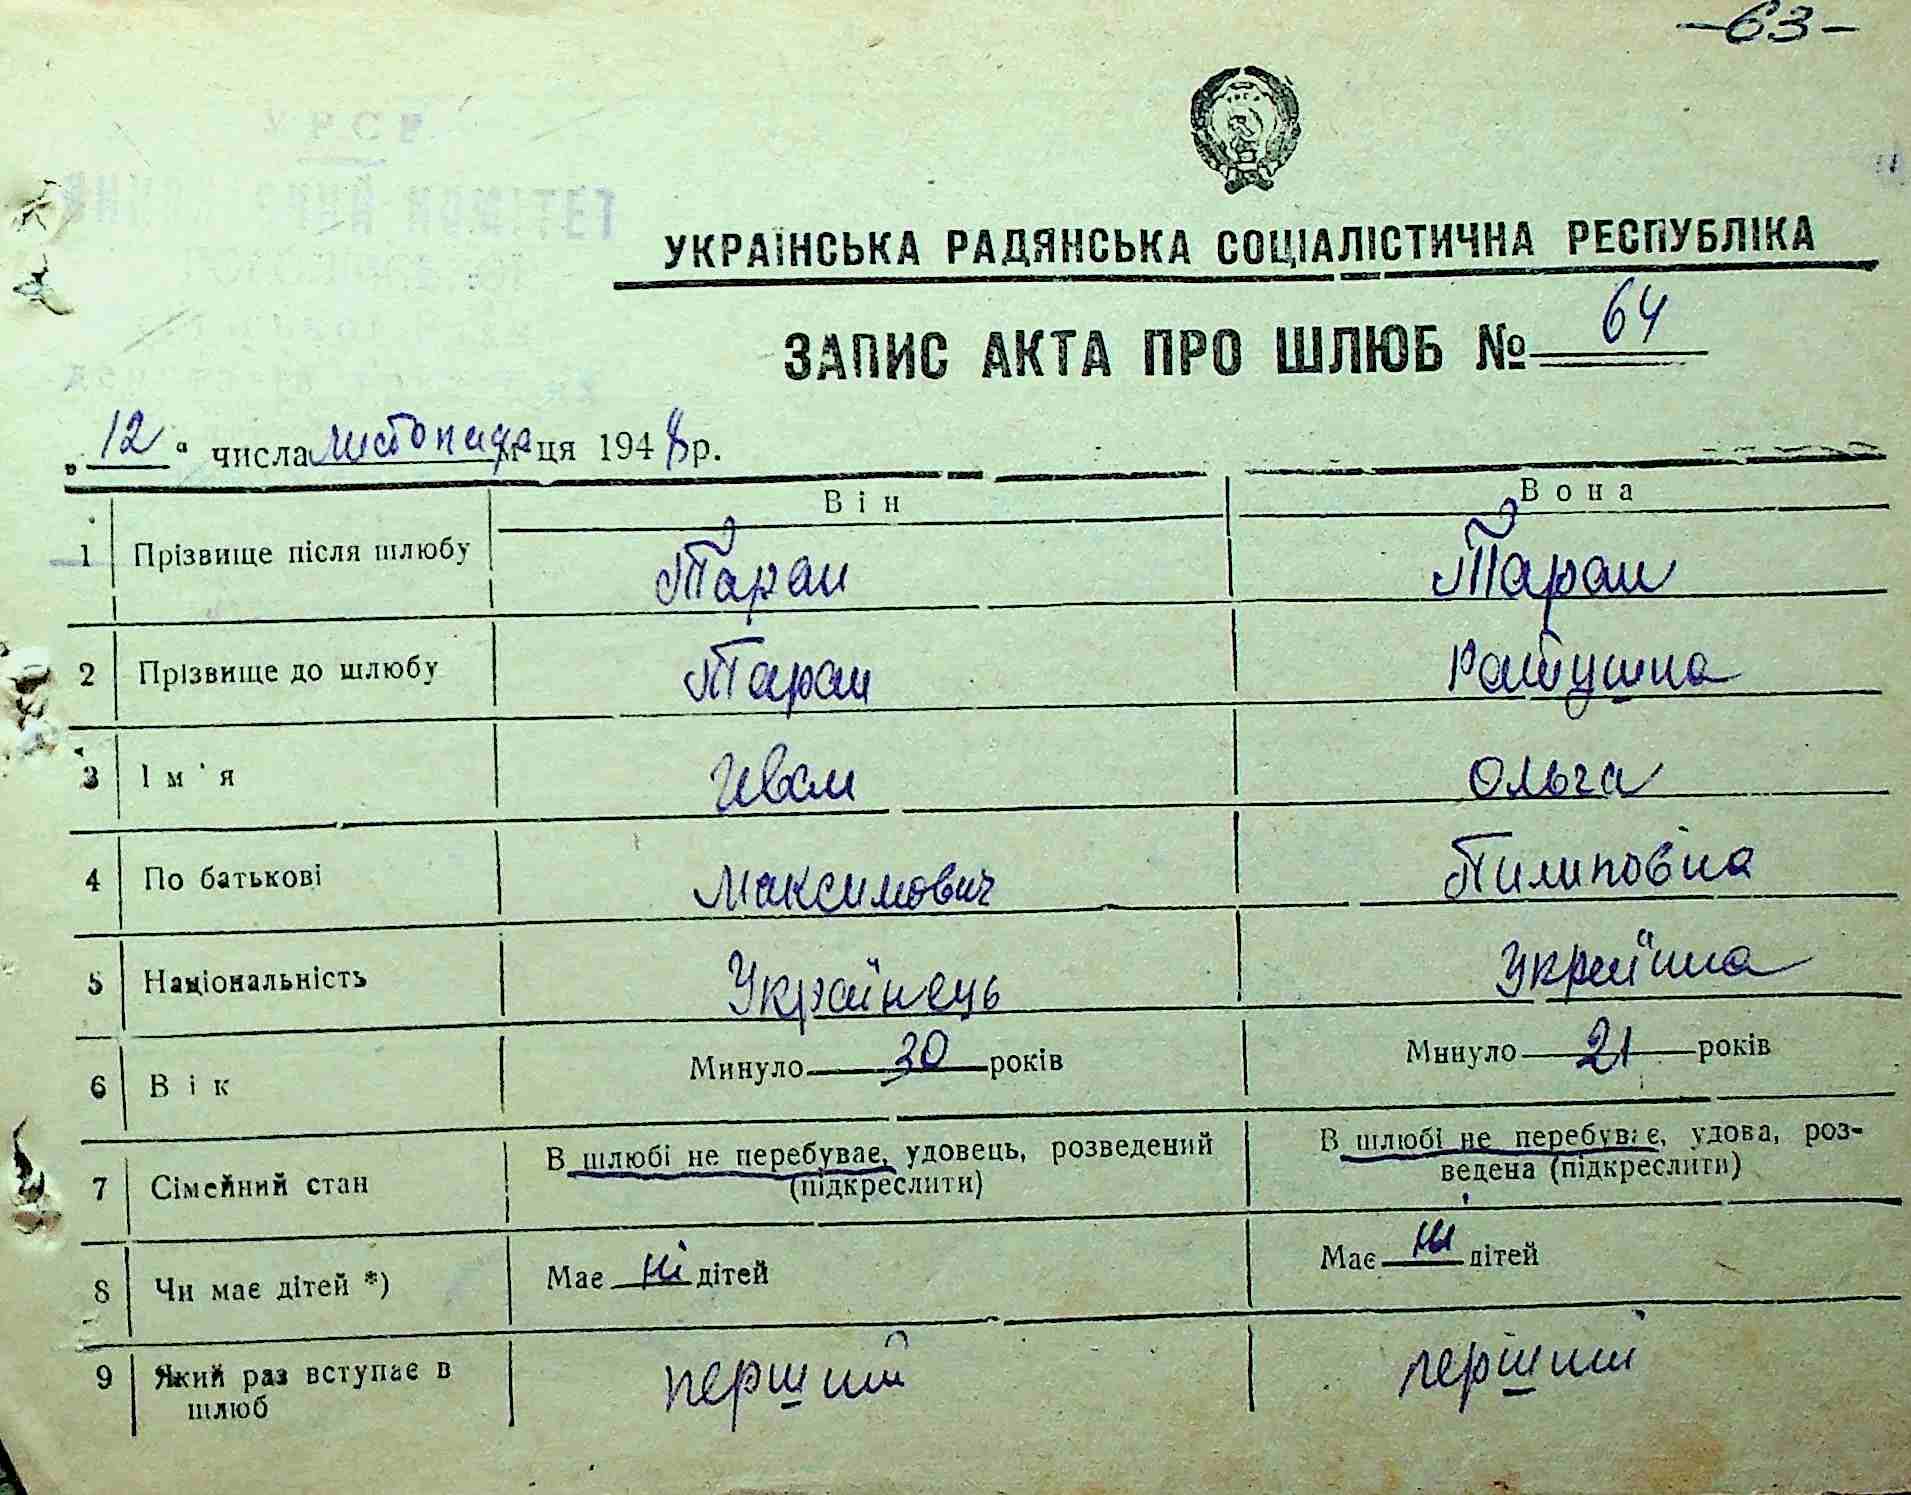 -63-
УКРАЇНСЬКА РАДЯНСЬКА СОЦІАЛІСТИЧНА РЕСПУБЛІКА
ЗАПИС АКТА ПРО ШЛЮБ № 64
„12“ числа листопада м-ця 1948 р.
Він Вона
1 Прізвище після шлюбу Таран Таран
2 Прізвище до шлюбу Таран
3 Ім'я Иван Ольга
4 По батькові Максимович Пилиповна
5 Національність Українець Українка
6 Вік Минуло 30 років Минуло 21 років
7 Сімейний стан В шлюбі не перебуває, удовець, розведений (підкреслити) В шлюбі не перебуває, удова, роз-
ведена (підкреслити)
8 Чи має дітей *) Має ні дітей Має ні дітей
9 Який раз вступає в шлюб перший перший